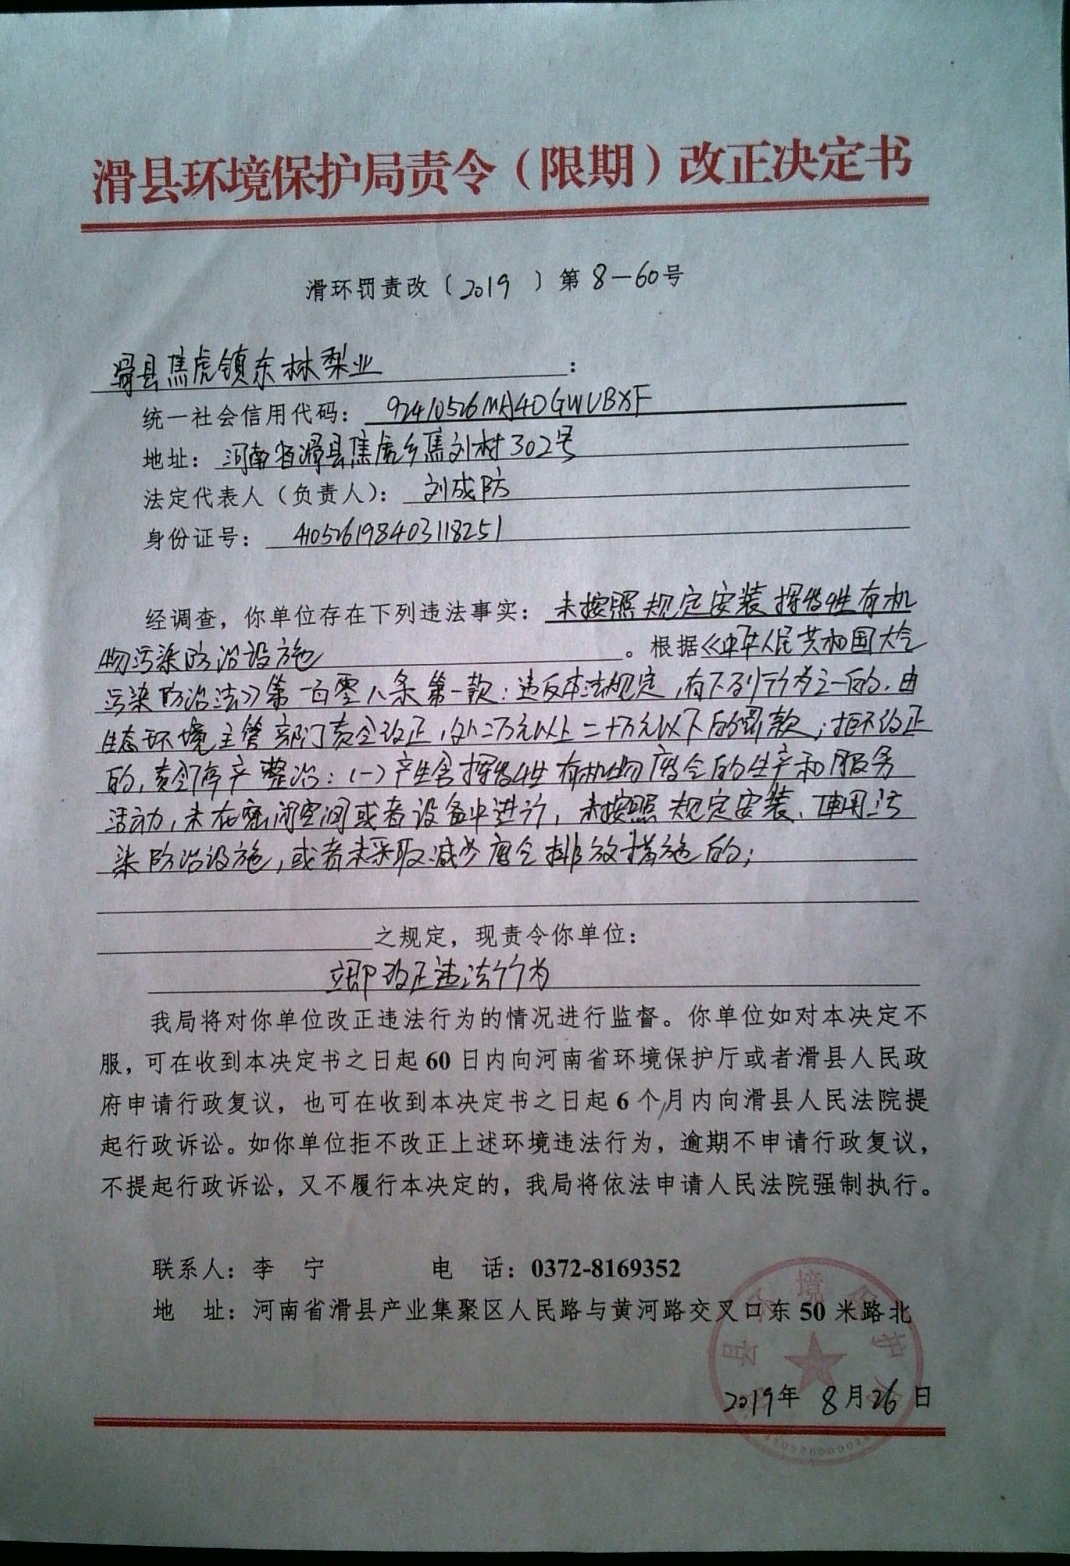 滑县环境保护局责令（限期）改正决定书
滑环罚责改〔2019〕第8-60号
滑县焦虎镇东林梨业：
统一社会信用代码：92410526MA40GWUBXF
地址：河南省滑县焦虎乡焦刘村302号
法定代表人（负责人）：刘成防
身份证号：410526198403118251
经调查，你单位存在下列违法事实：未按照规定安装挥发性有机
物污染防治设施。根据《中华人民共和国大气
污染防治法》第一百零八条第一款：违反本法规定，有下列行为之一的，由
生态环境主管部门责令改正，处二万元以上二十万元以下的罚款；拒不改正
的，责令停产整治：（一）产生含挥发性有机物废气的生产和服务
活动，未在密闭空间或者设备中进行，未按照规定安装、使用污
染防治设施，或者未采取减少废气排放措施的；
之规定，现责令你单位：
立即改正违法行为
我局将对你单位改正违法行为的情况进行监督。你单位如对本决定不
服，可在收到本决定书之日起60日内向河南省环境保护厅或者滑县人民政
府申请行政复议，也可在收到本决定书之日起6个月内向滑县人民法院提
起行政诉讼。如你单位拒不改正上述环境违法行为，逾期不申请行政复议，
不提起行政诉讼，又不履行本决定的，我局将依法申请人民法院强制执行。
联系人：李 宁 电 话：0372-8169352
地 址：河南省滑县产业集聚区人民路与黄河路交叉口东50米路北
2019年8月26日